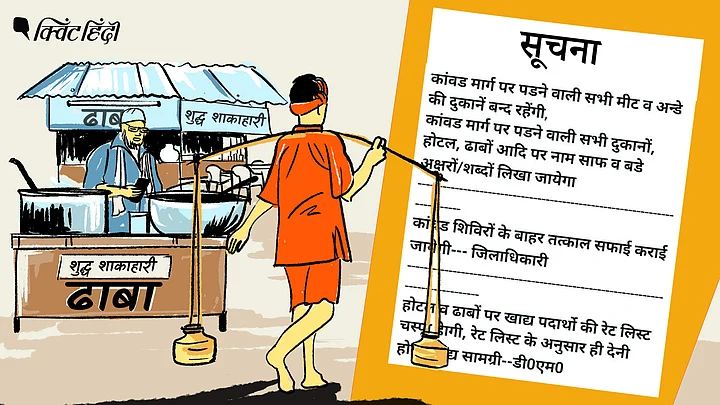 क्विंट हिंदी
ढाबा
शुद्ध शाकाहारी
शुद्ध शाकाहारी
ढाबा
सूचना
कांवड मार्ग पर पडने वाली सभी मीट व अन्डे
की दुकानें बन्द रहेंगी,
कांवड मार्ग पर पडने वाली सभी दुकानों,
होटल, ढाबों आदि पर नाम साफ व बडे
अक्षरों/शब्दों लिखा जायेगा
शिविरों के बाहर तत्काल सफाई कराई
जायेगी--- जिलाधिकारी
होटल व ढाबों पर खाद्य पदार्थो की रेट लिस्ट
होगी, रेट लिस्ट के अनुसार ही देनी
सामग्री--डी0एम0